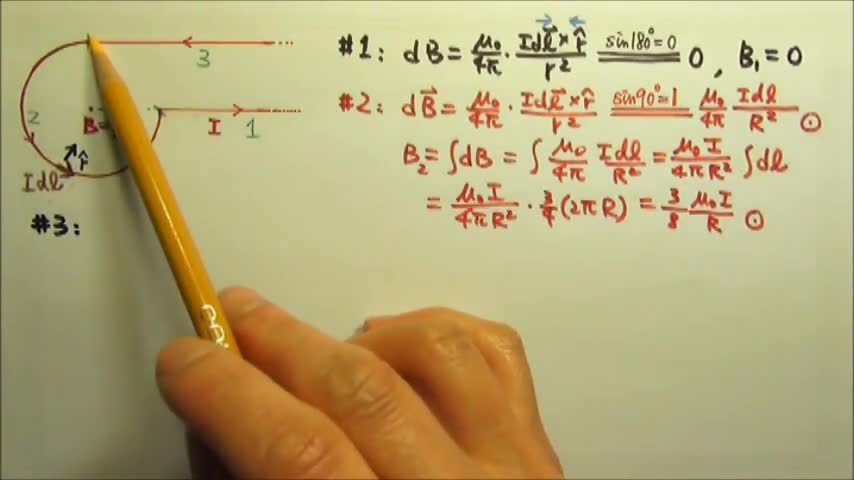 3
#1: dB = μ₀/4π · Idl⃗×r̂/r² sin180°=0 0, B₁ = 0
2
B=
I 1
#2: dB⃗ = μ₀/4π · Idl⃗×r̂/r² sin90°=1 μ₀/4π Idl/R² ⊙
r̂
Idl⃗
B₂ = ∫dB = ∫ μ₀/4π Idl/R² = μ₀I/4πR² ∫dl
= μ₀I/4πR² · 3/4 (2πR) = 3/8 μ₀I/R ⊙
#3: